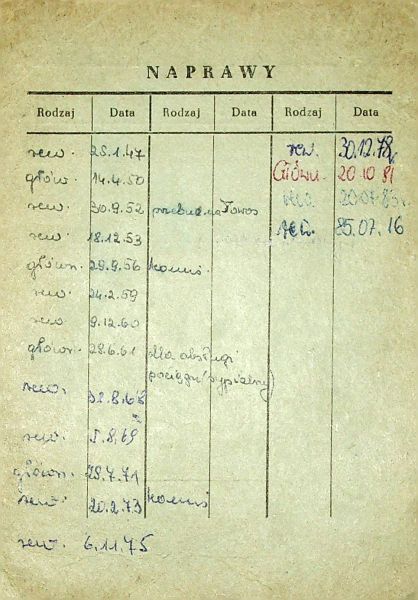 NAPRAWY
Rodzaj Data Rodzaj Data Rodzaj Data
rew. 25.1.47 rew. 30.12.78
głów. 14.4.50 Główn. 20 10 81
rew. 30.9.52 20.07.83
rew. 18.12.53 rew. 85.07.16
główn. 29.9.56
rew. 24.2.59
rew 9.12.60
główn. 28.6.61 dla obsługi
pociągu sypialnej)
rew. .8.68
rew. 5.8.69
główn. 29.7.71
rew. 20.2.73
rew. 6.11.75